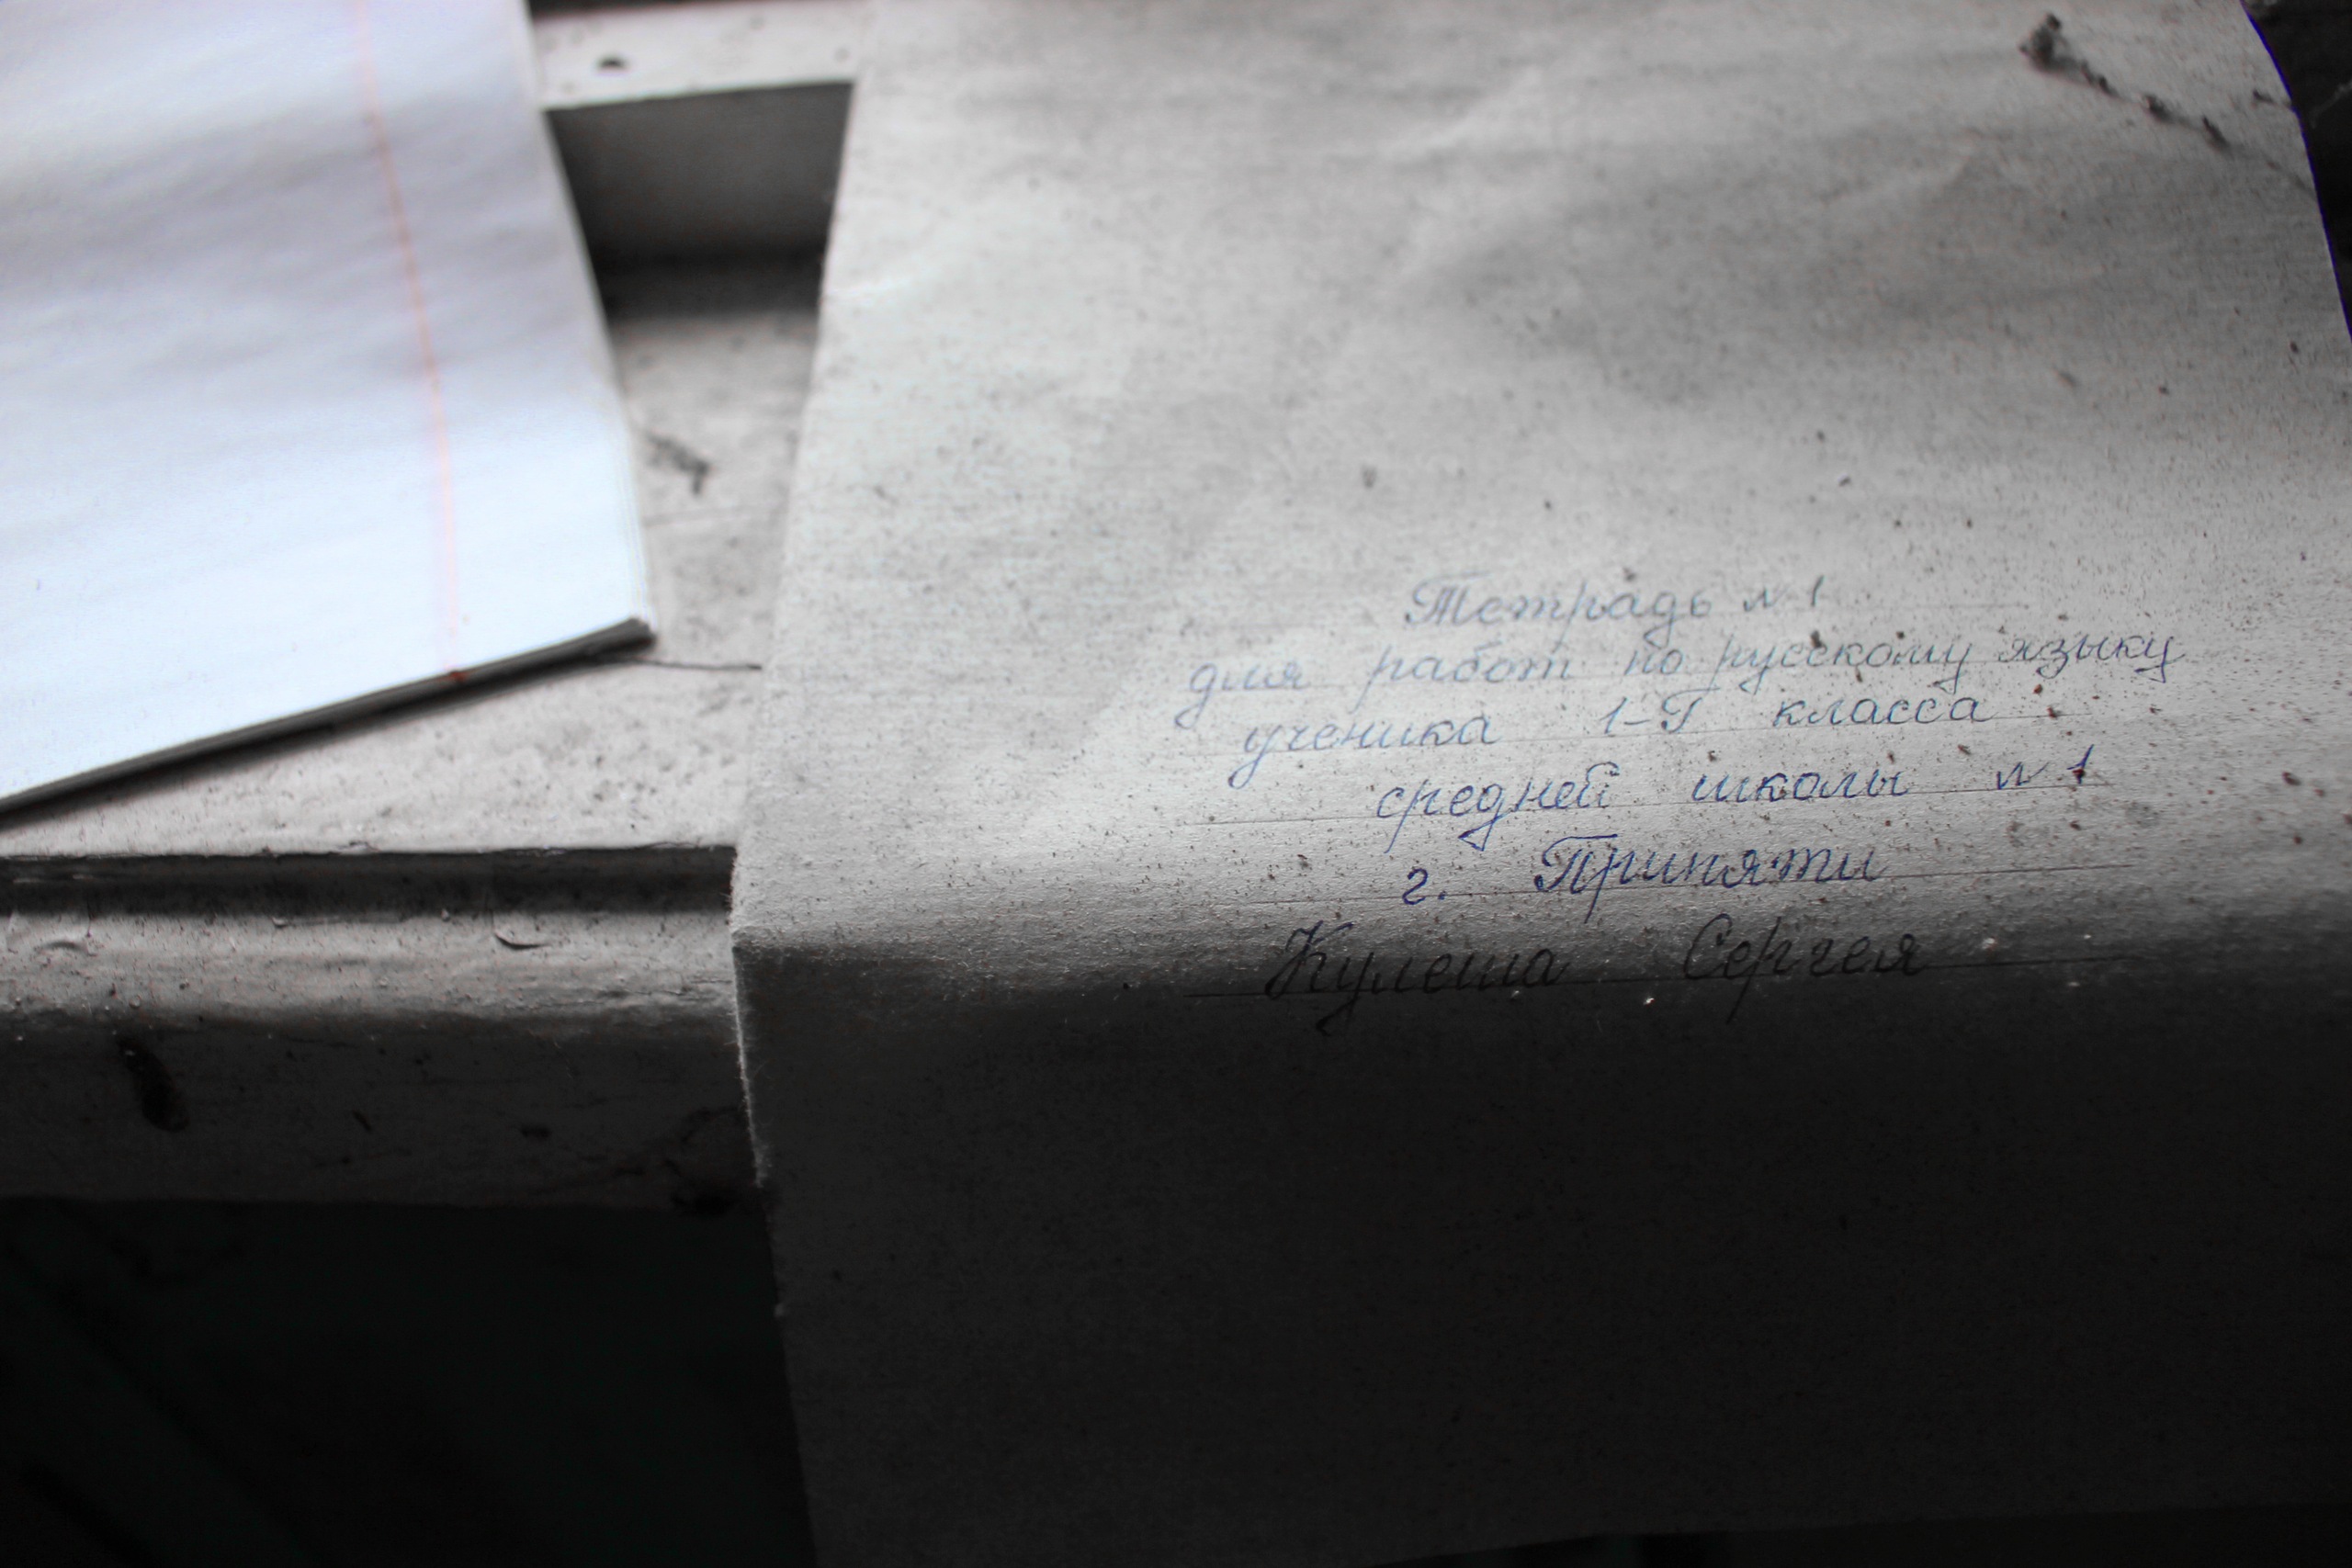 Тетрадь №1
для работ по русскому языку
ученика 1-Г класса
средней школы №1
г. Припяти
Кулеша Сергея